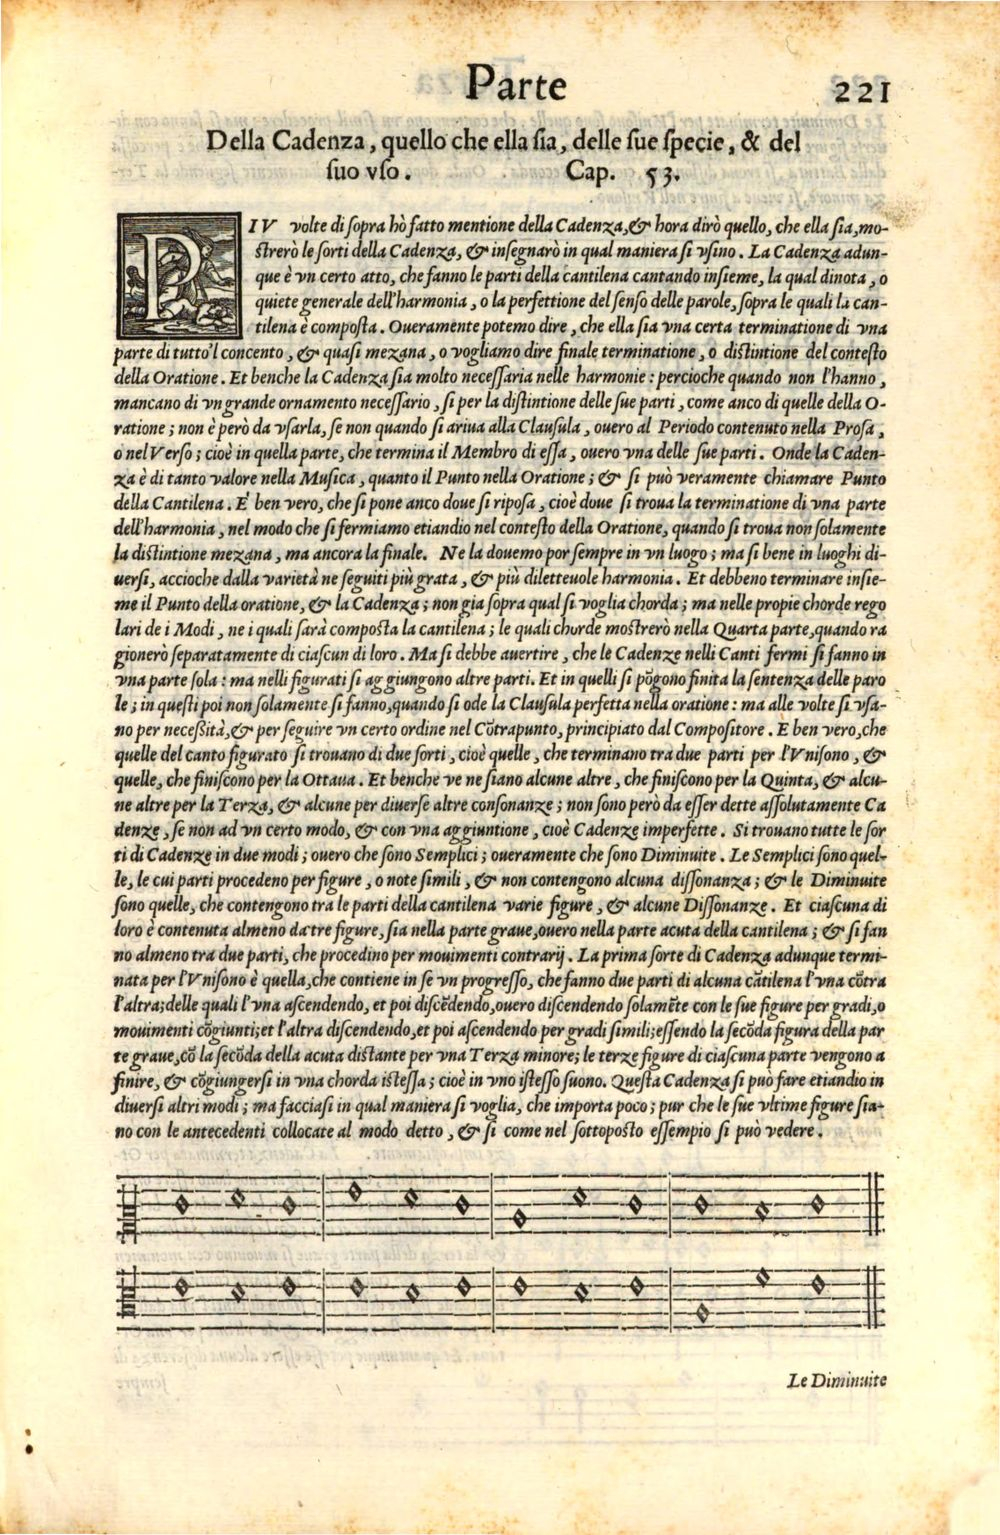 Parte 221
Della Cadenza, quello che ella ſia, delle ſue ſpecie, & del
ſuo vſo. Cap. 53.
PIV volte di ſopra hò fatto mentione della Cadenza, & hora dirò quello, che ella ſia, mo-
ſtrerò le ſorti della Cadenza, & inſegnarò in qual maniera ſi vſino. La Cadenza adun-
que è vn certo atto, che fanno le parti della cantilena cantando inſieme, la qual dinota, o
quiete generale dell'harmonia, o la perfettione del ſenſo delle parole, ſopra le quali la can-
tilena è compoſta. Oueramente potemo dire, che ella ſia vna certa terminatione di vna
parte di tutto'l concento, & quaſi mezana, o vogliamo dire finale terminatione, o diſtintione del conteſto
della Oratione. Et benche la Cadenza ſia molto neceſſaria nelle harmonie: percioche quando non l'hanno,
mancano di vn grande ornamento neceſſario, ſi per la diſtintione delle ſue parti, come anco di quelle della O-
ratione; non è però da vſarla, ſe non quando ſi ariua alla Clauſula, ouero al Periodo contenuto nella Proſa,
o nel Verſo; cioè in quella parte, che termina il Membro di eſſa, ouero vna delle ſue parti. Onde la Caden-
za è di tanto valore nella Muſica, quanto il Punto nella Oratione; & ſi può veramente chiamare Punto
della Cantilena. E' ben vero, che ſi pone anco doue ſi ripoſa, cioè doue ſi troua la terminatione di vna parte
dell'harmonia, nel modo che ſi fermiamo etiandio nel conteſto della Oratione, quando ſi troua non ſolamente
la diſtintione mezana, ma ancora la finale. Ne la douemo por ſempre in vn luogo; ma ſi bene in luoghi di-
uerſi, accioche dalla varietà ne ſeguiti più grata, & più diletteuole harmonia. Et debbeno terminare inſie-
me il Punto della oratione, & la Cadenza; non gia ſopra qual ſi voglia chorda; ma nelle propie chorde rego
lari de i Modi, ne i quali ſarà compoſta la cantilena; le quali chorde moſtrerò nella Quarta parte, quando ra
gionerò ſeparatamente di ciaſcun di loro. Ma ſi debbe auertire, che le Cadenze nelli Canti fermi ſi fanno in
vna parte ſola: ma nelli figurati ſi aggiungono altre parti. Et in quelli ſi põgono finita la ſentenza delle paro
le; in queſti poi non ſolamente ſi fanno, quando ſi ode la Clauſula perfetta nella oratione: ma alle volte ſi vſa-
no per neceßità, & per ſeguire vn certo ordine nel Cõtrapunto, principiato dal Compoſitore. E ben vero, che
quelle del canto figurato ſi trouano di due ſorti, cioè quelle, che terminano tra due parti per l'Vniſono, &
quelle, che finiſcono per la Ottaua. Et benche ve ne ſiano alcune altre, che finiſcono per la Quinta, & alcu-
ne altre per la Terza, & alcune per diuerſe altre conſonanze; non ſono però da eſſer dette aſſolutamente Ca
denze, ſe non ad vn certo modo, & con vna aggiuntione, cioè Cadenze imperfette. Si trouano tutte le ſor
ti di Cadenze in due modi; ouero che ſono Semplici; oueramente che ſono Diminuite. Le Semplici ſono quel-
le, le cui parti procedeno per figure, o note ſimili, & non contengono alcuna diſſonanza; & le Diminuite
ſono quelle, che contengono tra le parti della cantilena varie figure, & alcune Diſſonanze. Et ciaſcuna di
loro è contenuta almeno da tre figure, ſia nella parte graue, ouero nella parte acuta della cantilena; & ſi fan
no almeno tra due parti, che procedino per mouimenti contrarij. La prima ſorte di Cadenza adunque termi-
nata per l'Vniſono è quella, che contiene in ſe vn progreſſo, che fanno due parti di alcuna cãtilena l'vna cõtra
l'altra; delle quali l'vna aſcendendo, et poi diſcẽdendo, ouero diſcendendo ſolamẽte con le ſue figure per gradi, o
mouimenti cõgiunti; et l'altra diſcendendo, et poi aſcendendo per gradi ſimili; eſſendo la ſecõda figura della par
te graue, cõ la ſecõda della acuta diſtante per vna Terza minore; le terze figure di ciaſcuna parte vengono a
finire, & cõgiungerſi in vna chorda iſteſſa; cioè in vno iſteſſo ſuono. Queſta Cadenza ſi può fare etiandio in
diuerſi altri modi; ma facciaſi in qual maniera ſi voglia, che importa poco; pur che le ſue vltime figure ſia-
no con le antecedenti collocate al modo detto, & ſi come nel ſottopoſto eſſempio ſi può vedere.
Le Diminuite